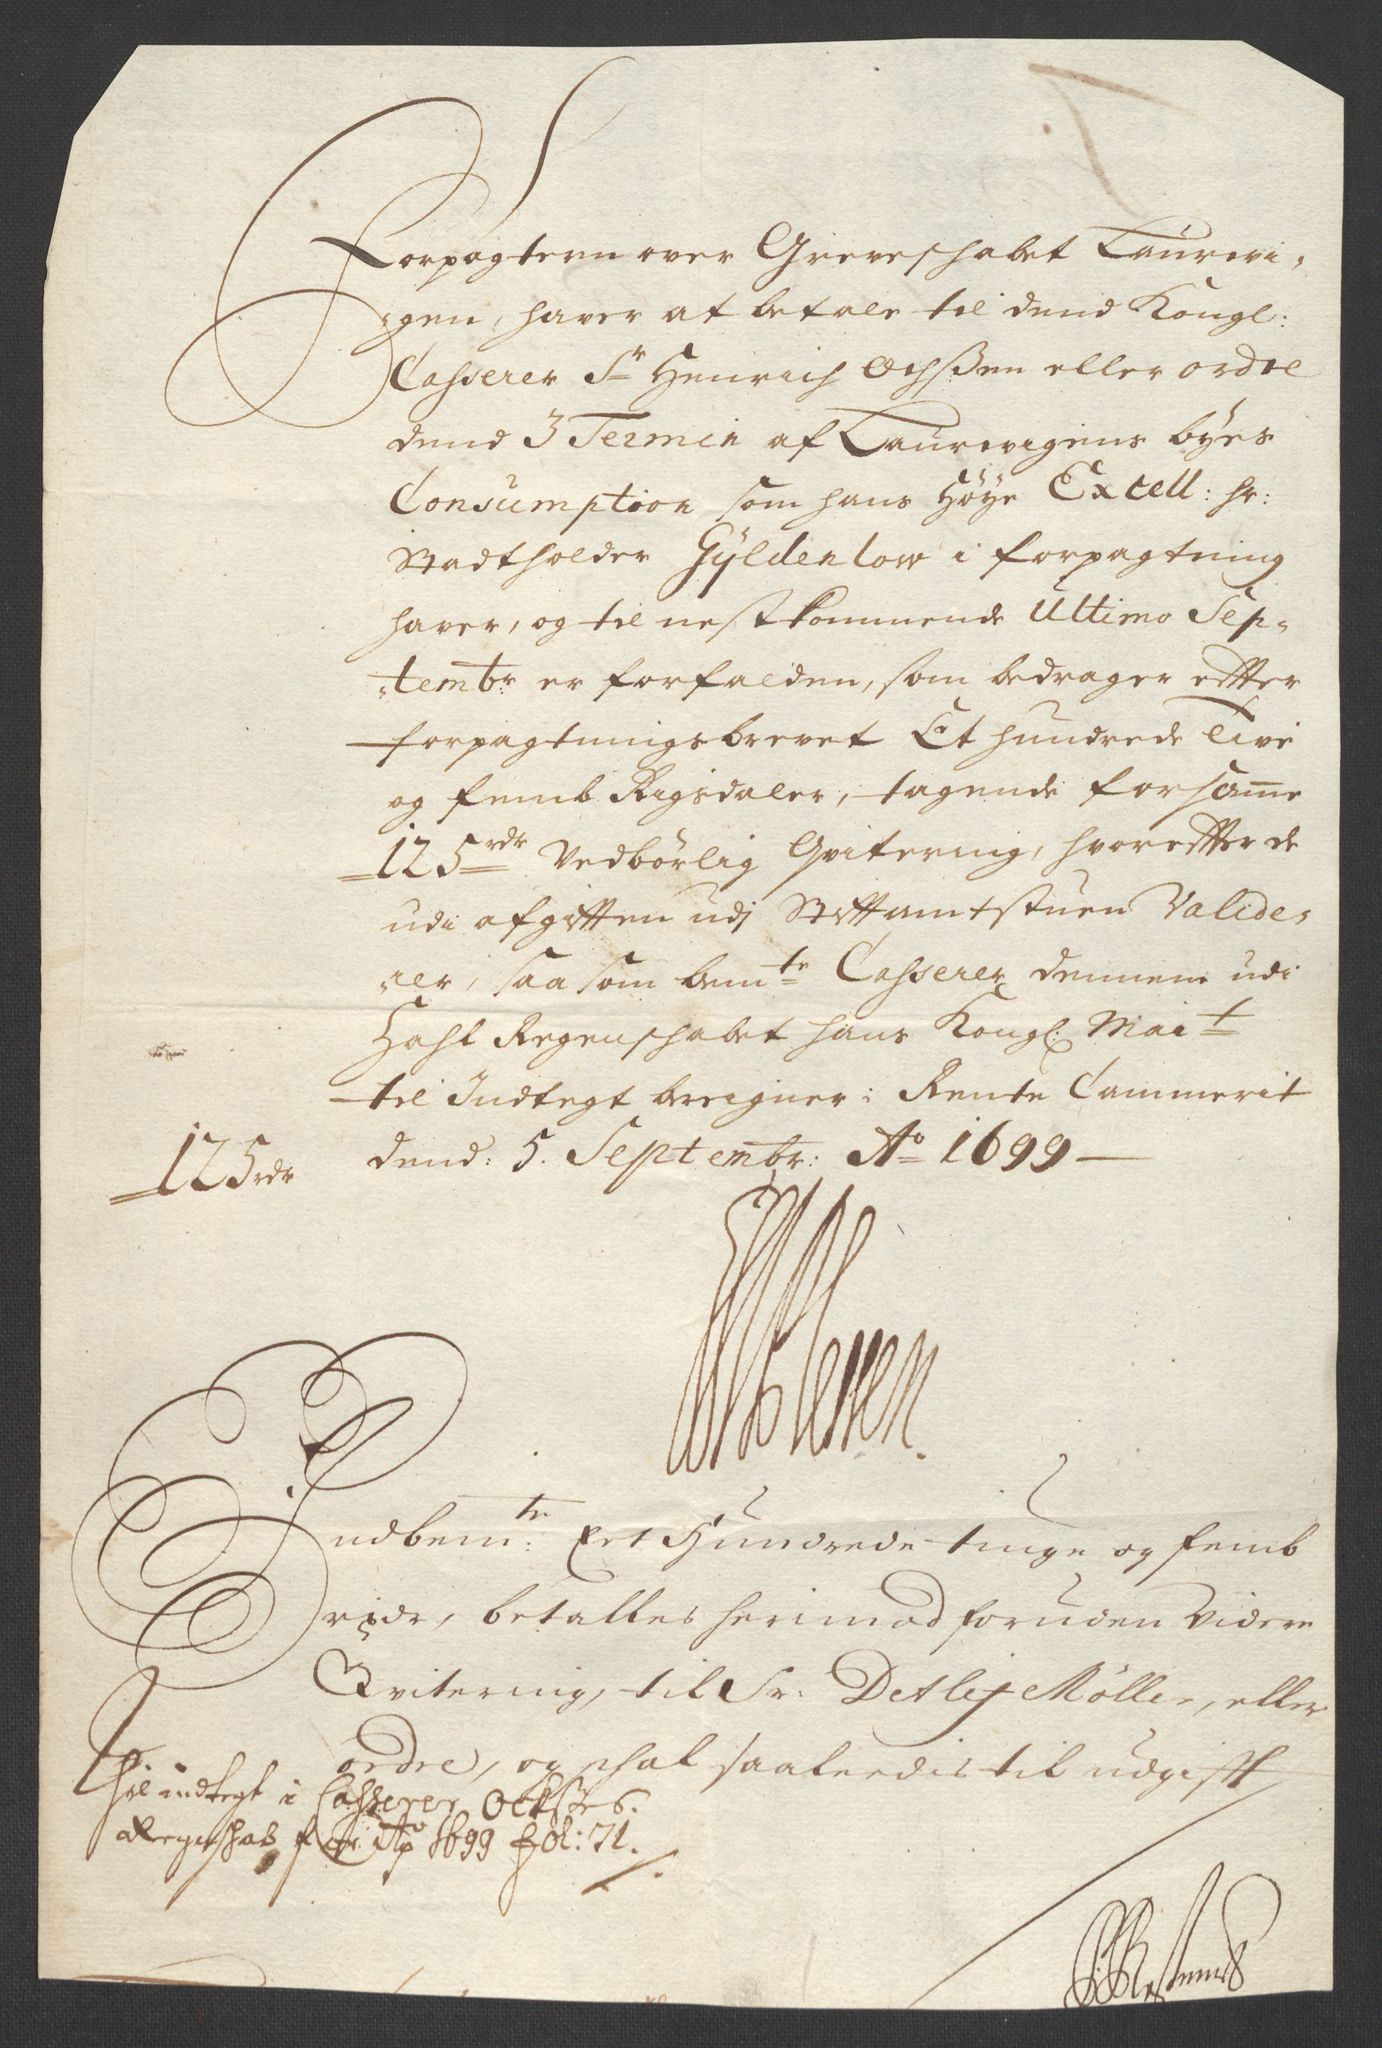 Forpagteren over Grevschabet Laurvi-
gen, haver at betale til dend Kongl:
Casserer Sr Henrich Ochssen eller ordre
dend 3 Termin af Laurvigens byes
Consumption som hans Höye Excell: hr:
Stadtholder Gÿldenlow i forpagtning
haver, og til nestkommende Ultimo Sep-
tembr er forfalden, som bedrager effter
forpagtningsbrevet Et hundrede Tive
og femb Rigsdaler, tagende for samme
125 rdr Vedbörlig Qvitering, hvoreffter de
udi afgifften udj Stifftamtstuen Valide-
rer, saa som bemte Casserer dennem udi
Zahl Regenschabet hans Kongl: Mait
til Indtegt beregner: Rente Cammerit
dend: 5. Septembr: Ao 1699
125 rdr
Indbemte: Eet Hundrede tiuge og femb
rixdr, betalles herimod foruden videre
Qvitering, til Sr: Detlef Möller, eller
ordre, og schal saaledis til udgifft
til indtegt i Casserer Ockses
Regenschab for Ao 1699 fol: 71.